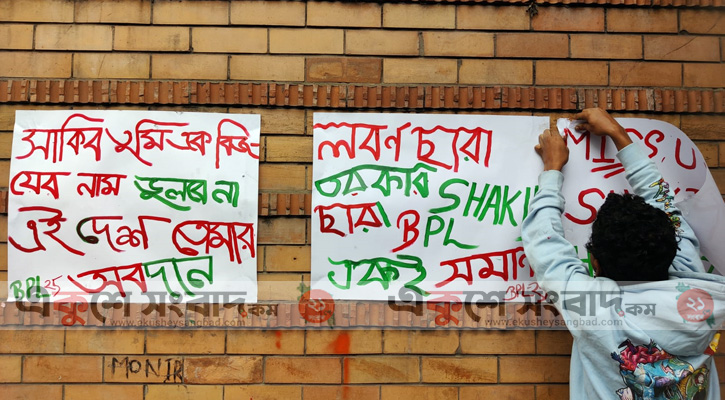 সাকিব তুমি এক বিজ-
য়ের নাম ভুলবে না
এই দেশ তোমার
অবদান
BPL 25
লবণ ছারা
তরকারি SHAKI
ছারা BPL
একই সমান
BPL 25
MISS U
একুশে সংবাদ কম
www.ekusheysangbad.com
একুশে সংবাদ কম
www.ekusheysangbad.com
MONIR